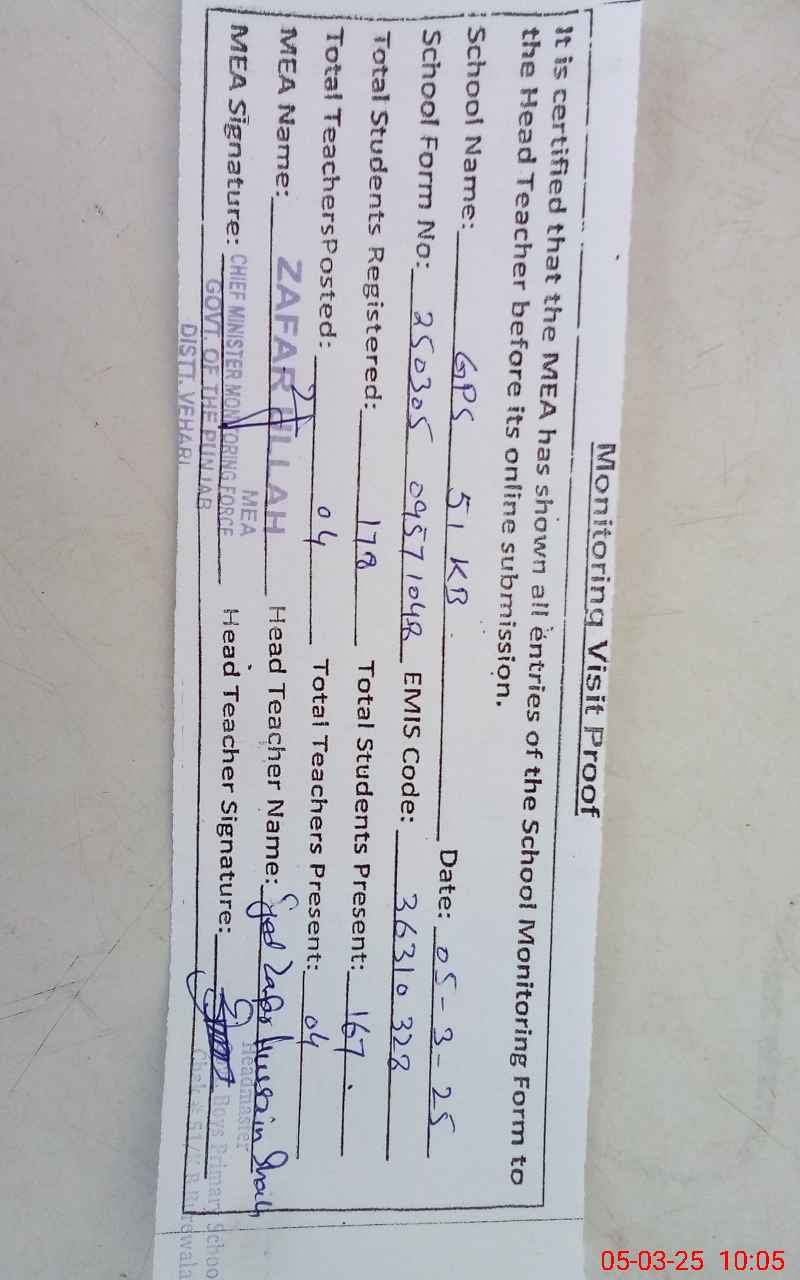 Monitoring Visit Proof
It is certified that the MEA has shown all entries of the School Monitoring Form to
the Head Teacher before its online submission.
School Name: GPS 51 KB Date: 05-3-25
School Form No: 250305 09571048 EMIS Code: 36310328
Total Students Registered: 178 Total Students Present: 167.
Total TeachersPosted: 04 Total Teachers Present: 04
MEA Name: ZAFAR ULLAH Head Teacher Name: Syed Zafar Hussain Shah
MEA Signature: Head Teacher Signature:
MEA
CHIEF MINISTER MONITORING FORCE
GOVT. OF THE PUNJAB
DISTT. VEHARI
Headmaster
Boys Primary School
Chak # 51/K.B
05-03-25 10:05